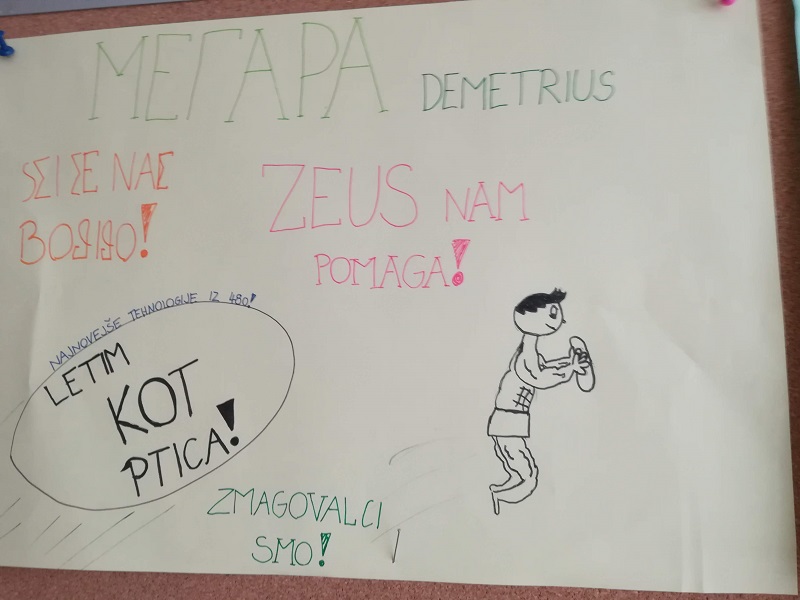 ΜΕΓΑΡΑ DEMETRIUS
ΣE NAΣ
ZEUS NAM
POMAGA!
NAJNOVEJŠE TEHNOLOGIJE IZ 480!
LETIM
KOT
PTICA!
ZMAGOVALCI
SMO!